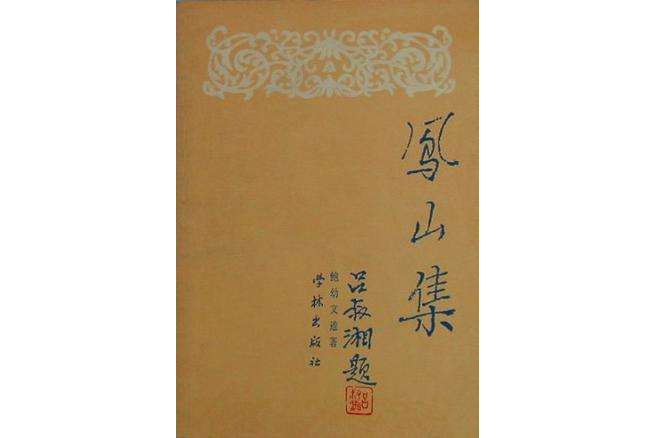 鳳山集
吕叔湘题
鲍幼文遗著
学林出版社